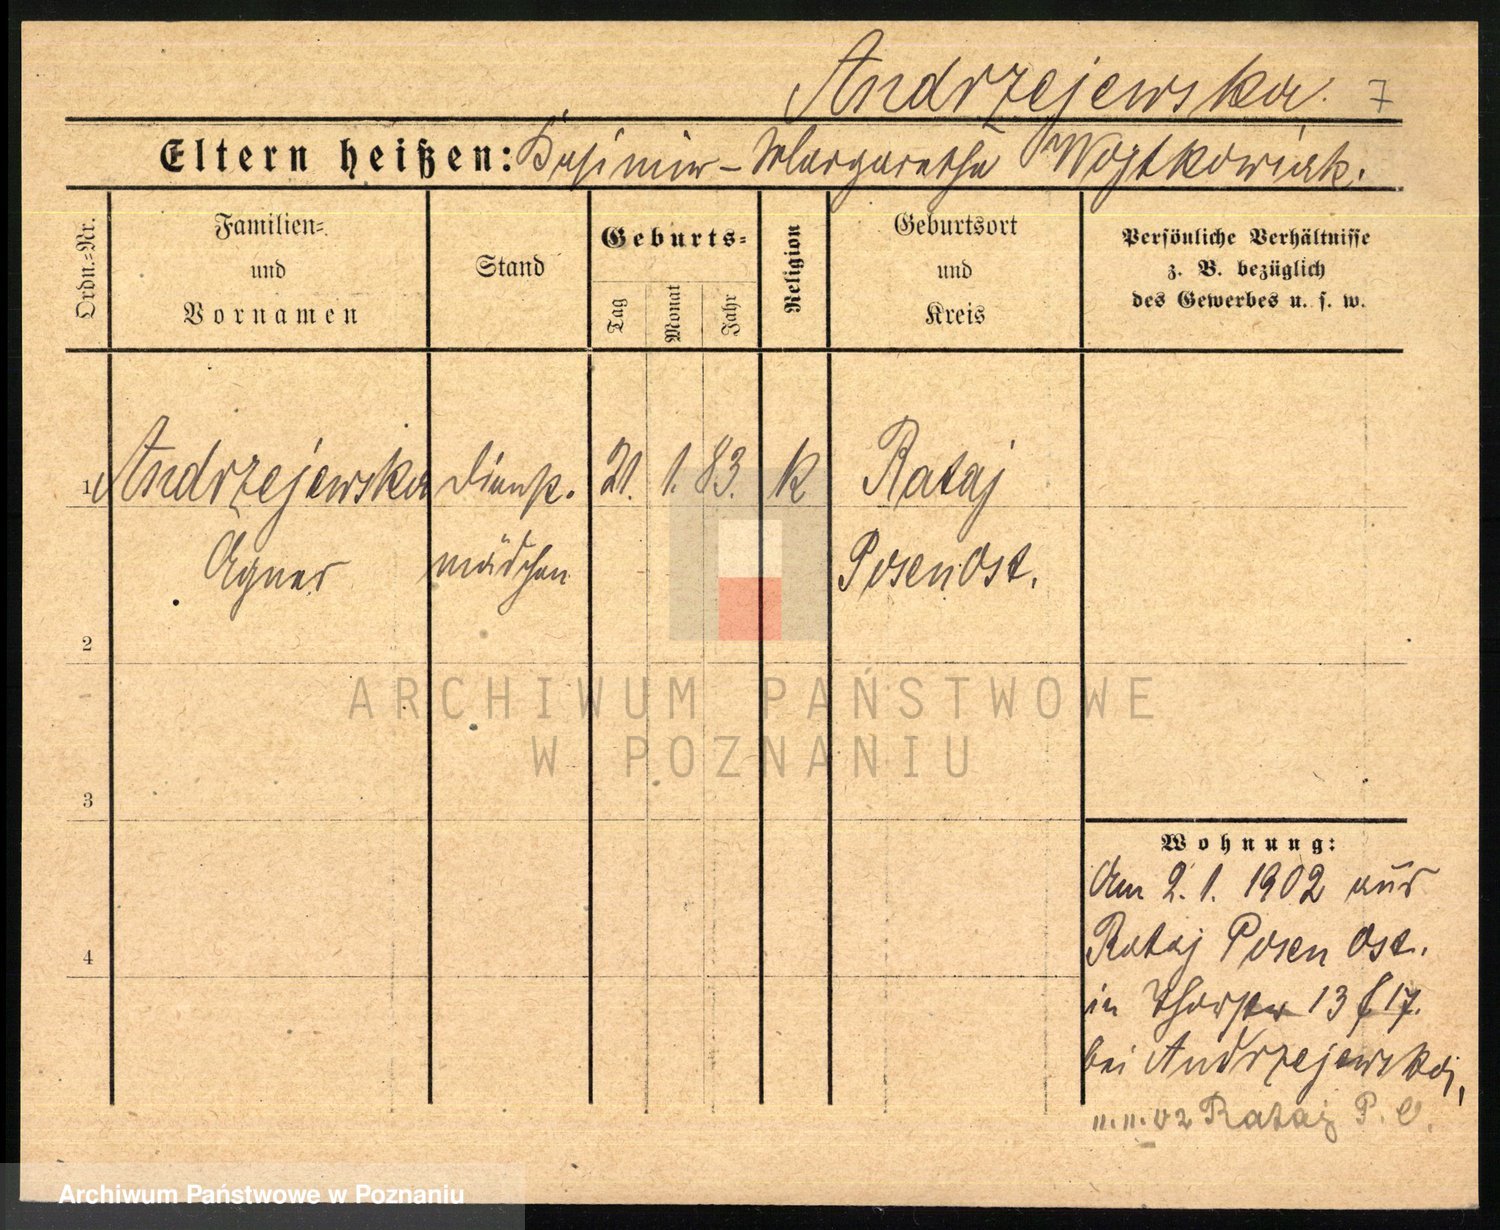 Andrzejewska. 7
Eltern heißen: Kasimir – Margarethe Wogtkowiak.
Ordn.=Nr.
Familien=
und
Vornamen
Stand
Geburts=
Tag
Monat
Jahr
Religion
Geburtsort
und
Kreis
Persönliche Verhältnisse
z. B. bezüglich
des Gewerbes u. s. w.
1 Andrzejewska Dienst. 21. 1. 83. k Rataj
Agnes mädchen Posen Ost.
2
ARCHIWUM PAŃSTWOWE
W POZNANIU
3
Wohnung:
Am 2. 1. 1902 aus
Rataj Posen Ost.
4
in 13 17.
bei Andrzejewski,
02 Rataj P. O.
Archiwum Państwowe w Poznaniu